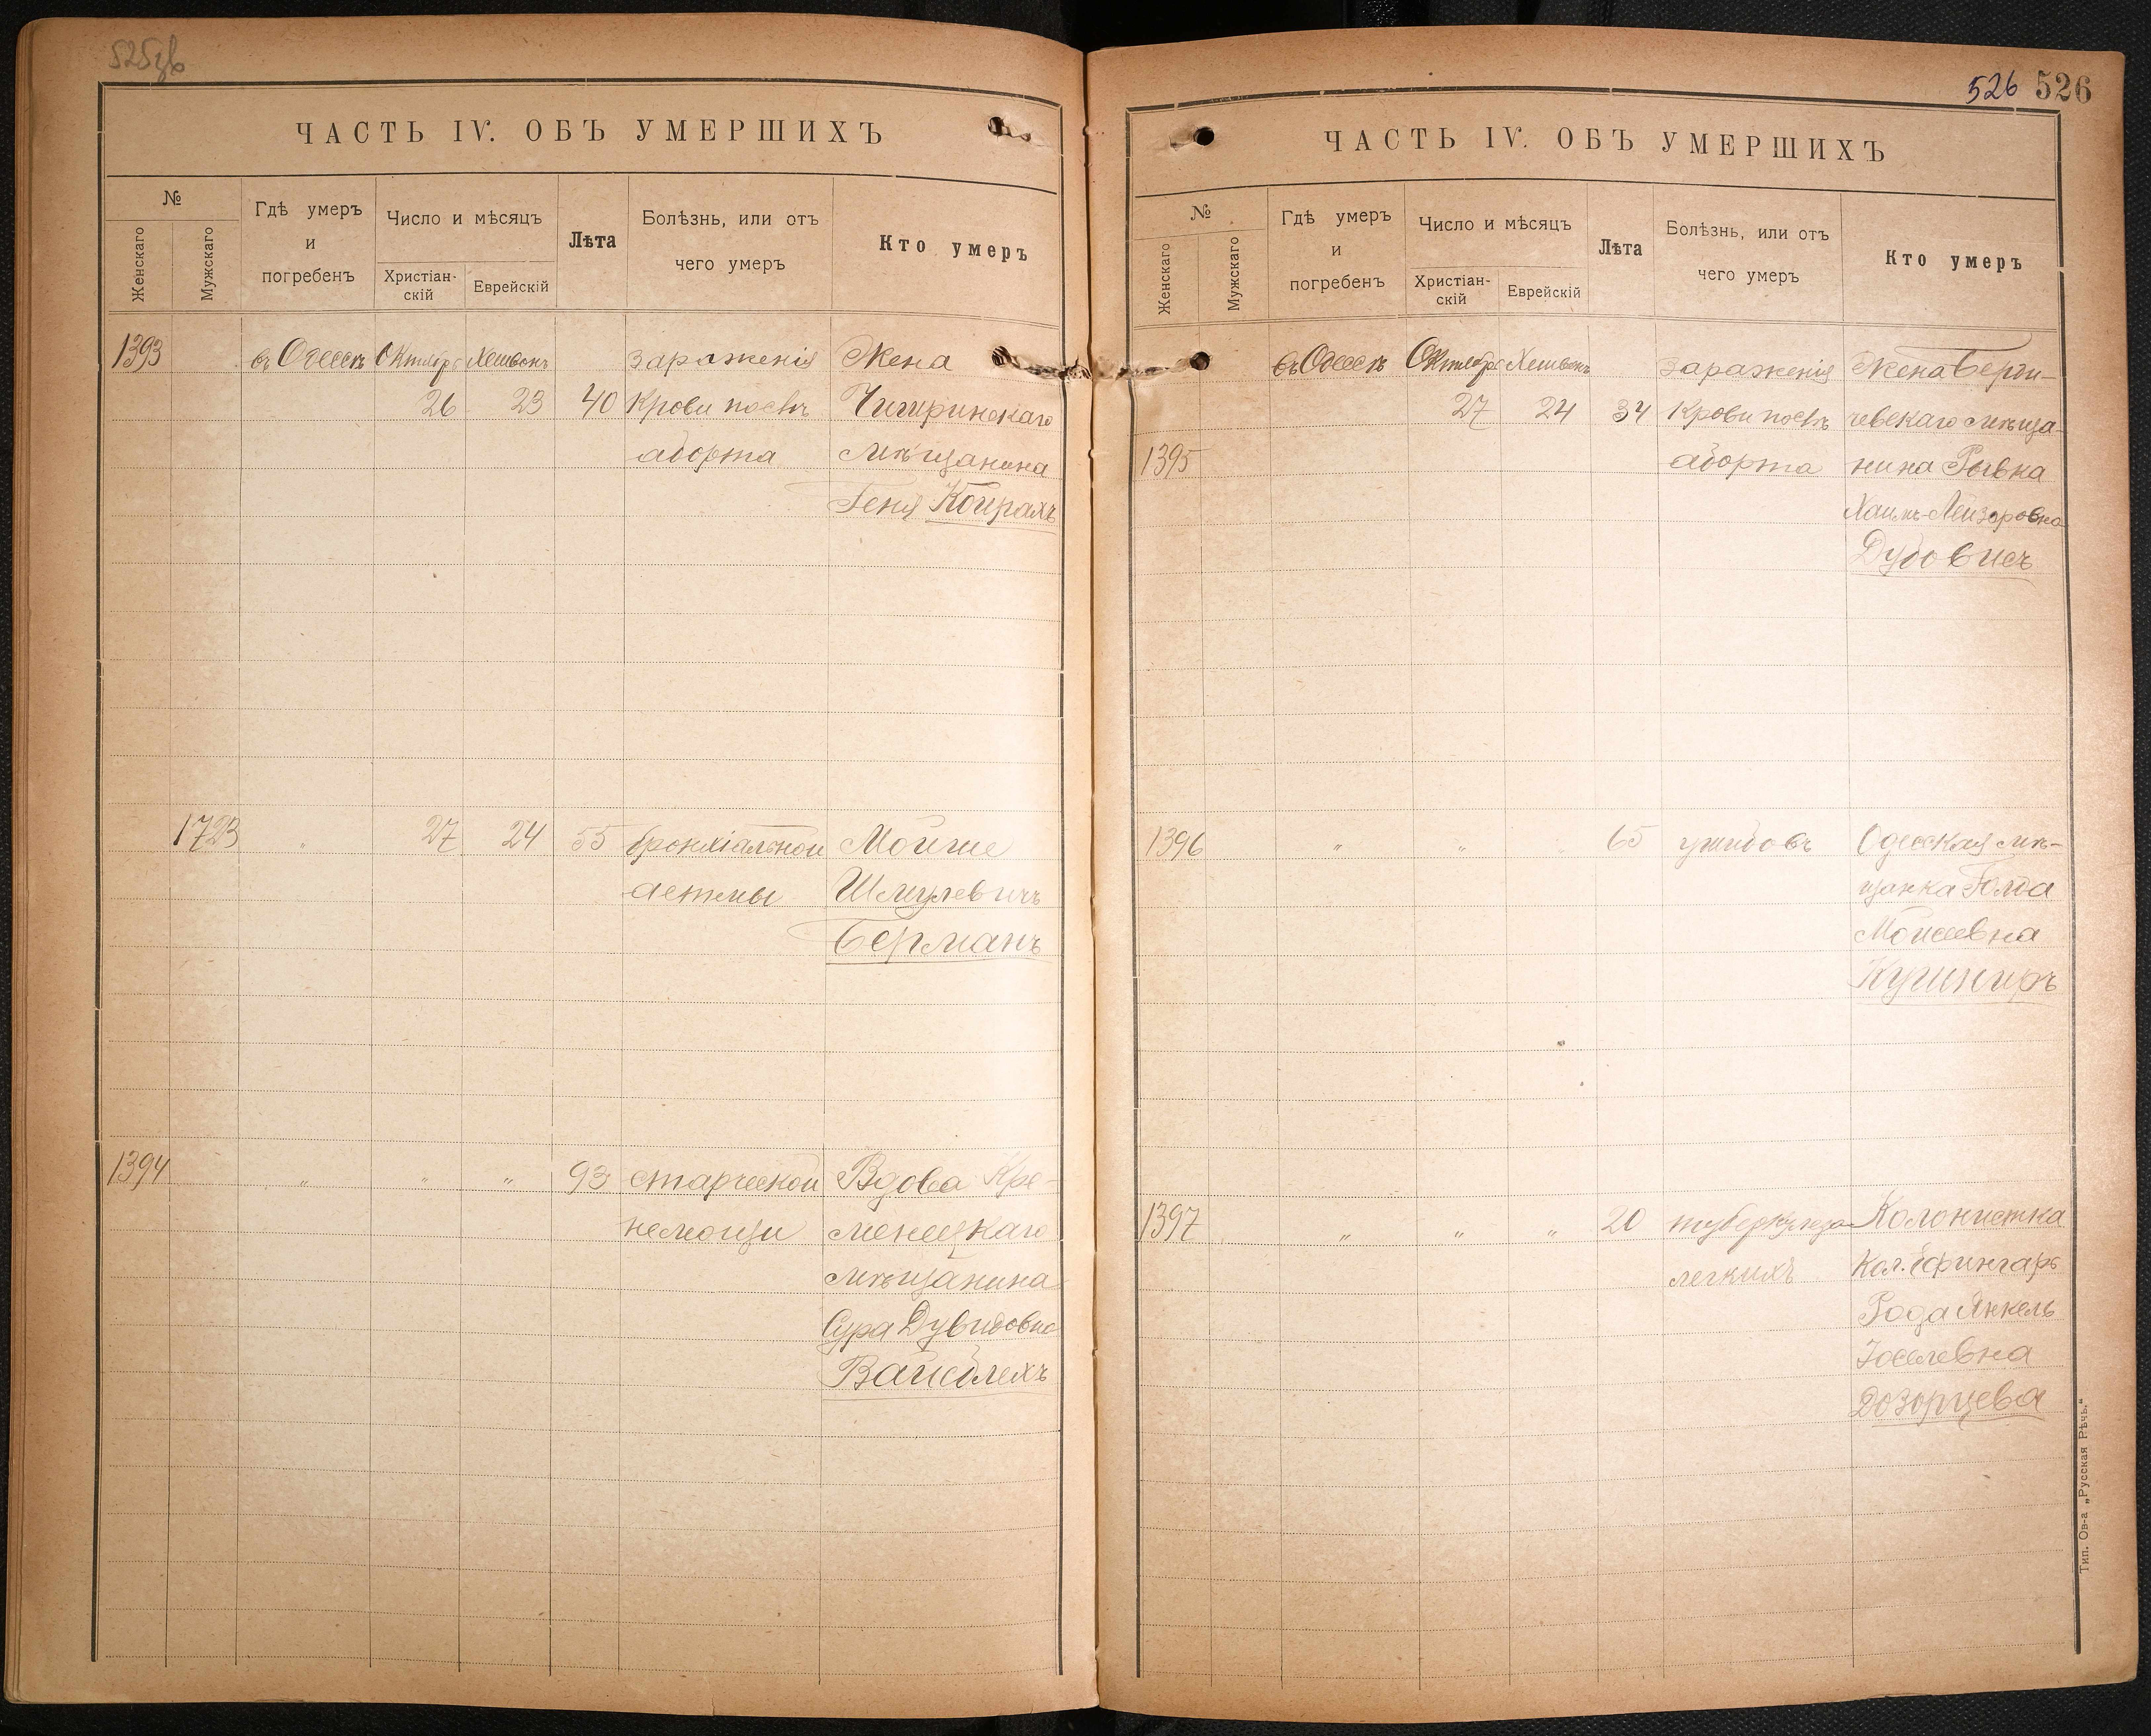 525 об
ЧАСТЬ IV. ОБЪ УМЕРШИХЪ
№
Женскаго
Мужскаго
Гдѣ умеръ
и
погребенъ
Число и мѣсяцъ
Христіан-
скій
Еврейскій
Лѣта
Болѣзнь, или отъ
чего умеръ
Кто умеръ
1393 въ Одессѣ Октября Хешвонъ зараженія Жена
26 23 40 крови послѣ Чигиринскаго
аборта мѣщанина
Геня Койрахъ
1723 " 27 24 55 бронхіальной Мойше
астмы Шмулевичъ
Берманъ
1394 " " " 93 старческой Вдова Кре-
немощи менецкаго
мѣщанина
Сура Дувидовна
Вайсблехъ
526 526
ЧАСТЬ IV. ОБЪ УМЕРШИХЪ
№
Женскаго
Мужскаго
Гдѣ умеръ
и
погребенъ
Число и мѣсяцъ
Христіан-
скій
Еврейскій
Лѣта
Болѣзнь, или отъ
чего умеръ
Кто умеръ
въ Одессѣ Октября Хешвонъ зараженія Жена Берди-
27 24 34 крови послѣ чевскаго мѣща-
1395 аборта нина Рывка
Хаимъ-Лейзеровна
Дубовисъ
1396 " " " 65 ушибовъ Одесская мѣ-
щанка Голда
Моисеевна
Кушниръ
1397 " " " 20 туберкулеза Колонистка
легкихъ Кол. Ефингаръ
Рода Янкель
Іоселевна
Дозорцева
Тип. Ов-а „Русская Рѣчь."